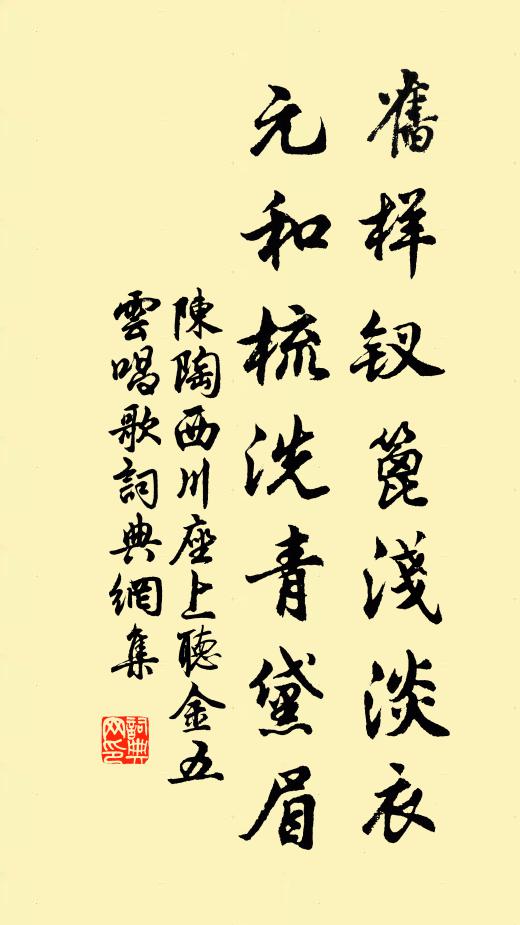 舊样钗篦淺淡衣
元和梳洗青黛眉
陳陶西川座上聽金五
雲唱歌詞典網集
詞典
网印